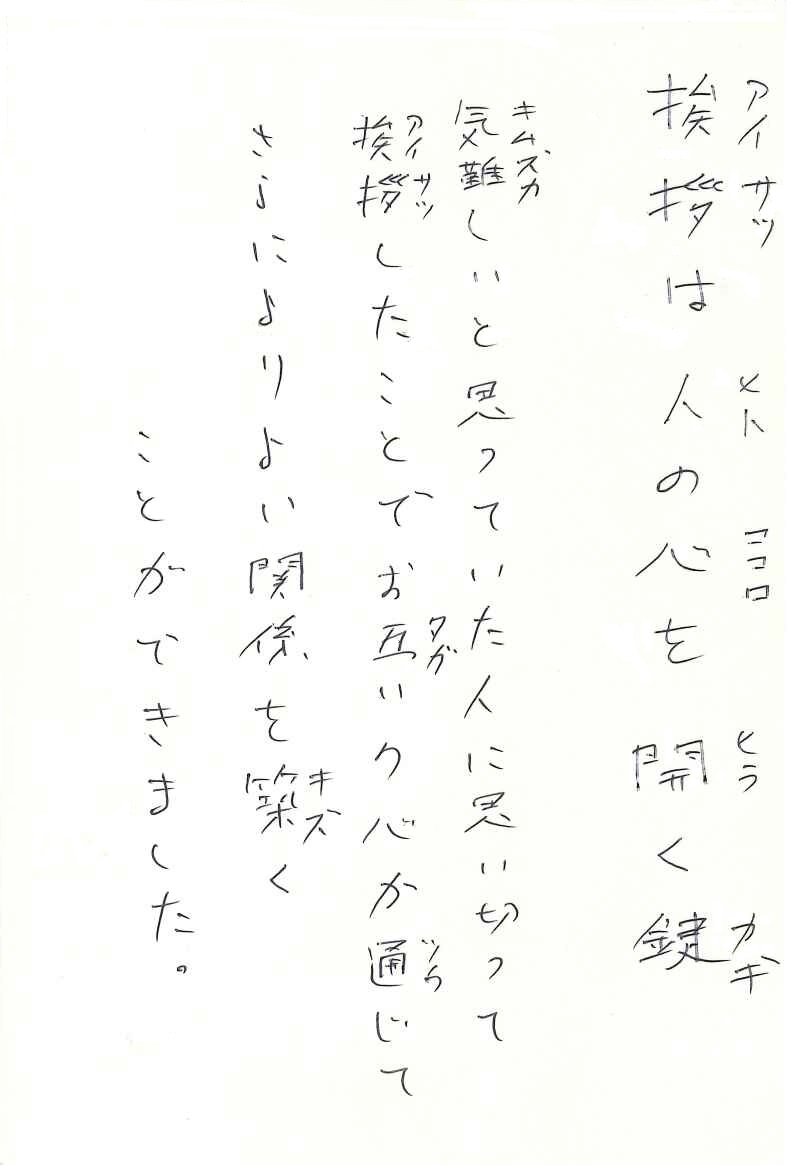 挨拶は人の心を開く鍵
アイサツ ヒト ココロ ヒラ カギ
気難しいと思っていた人に思い切って
キムズカ
挨拶したことでお互いの心が通じて
アイサツ タガ ツウ
さらによりよい関係を築く
キズ
ことができました。